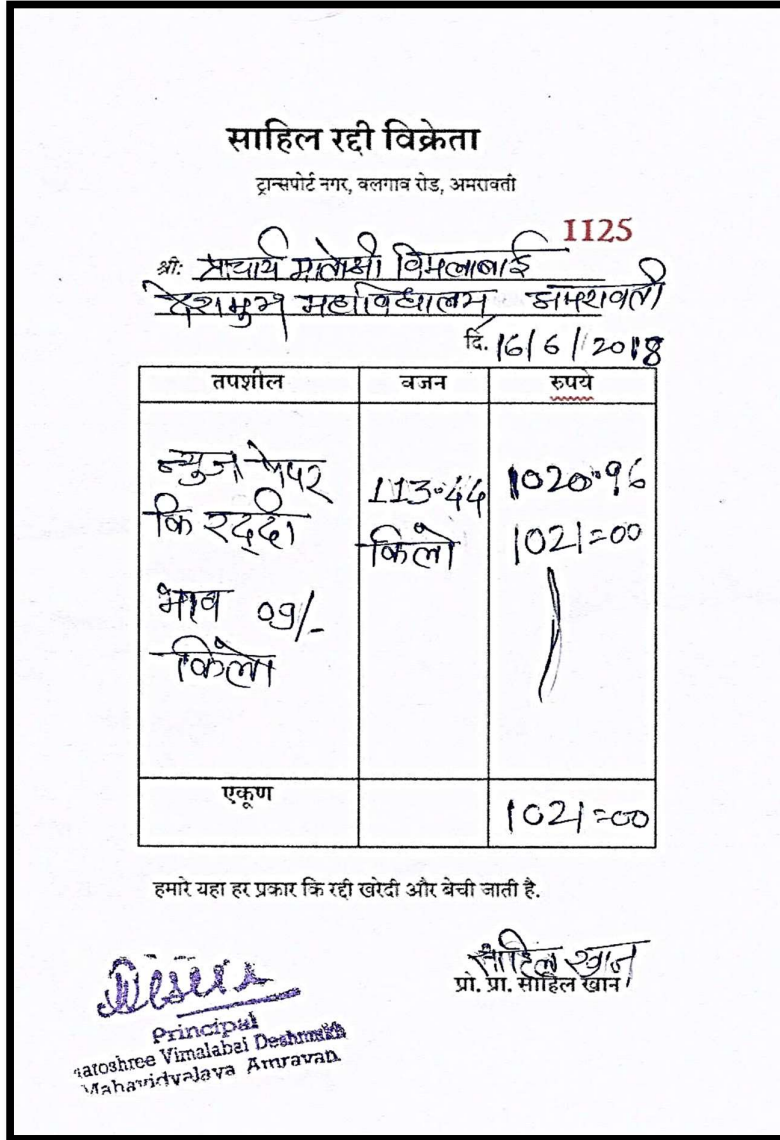 साहिल रद्दी विक्रेता
ट्रान्सपोर्ट नगर, वलगाव रोड, अमरावती
1125
श्री: प्राचार्य मातोश्री विमलाबाई
देशमुख महाविद्यालय अमरावती
दि. 16/6/2018
तपशील वजन रुपये
न्युज पेपर 113.44 1020.96
कि रद्दी किलो 1021=00
भाव 09/-
किलो
एकूण 1021=00
हमारे यहा हर प्रकार कि रद्दी खरेदी और बेची जाती है.
साहिल खान
प्रो. प्रा. साहिल खान
Principal
atoshree Vimalabai Deshmukh
Mahavidyalaya Amravati